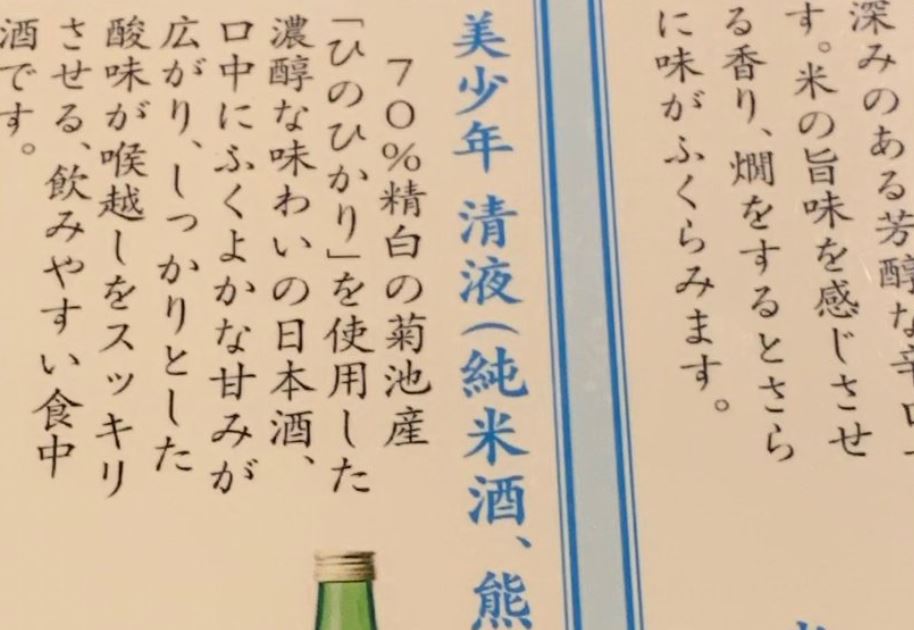 深みのある芳醇な辛口
す。米の旨味を感じさせ
る香り、燗をするとさら
に味がふくらみます。
美少年 清液(純米酒、熊
70%精白の菊池産
「ひのひかり」を使用した
濃醇な味わいの日本酒、
口中にふくよかな甘みが
広がり、しっかりとした
酸味が喉越しをスッキリ
させる、飲みやすい食中
酒です。